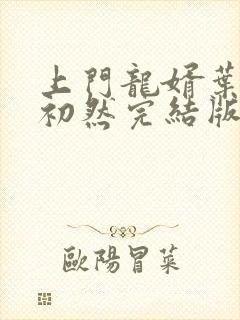 上門龍婿葉
初然完結版
歐陽冒菜